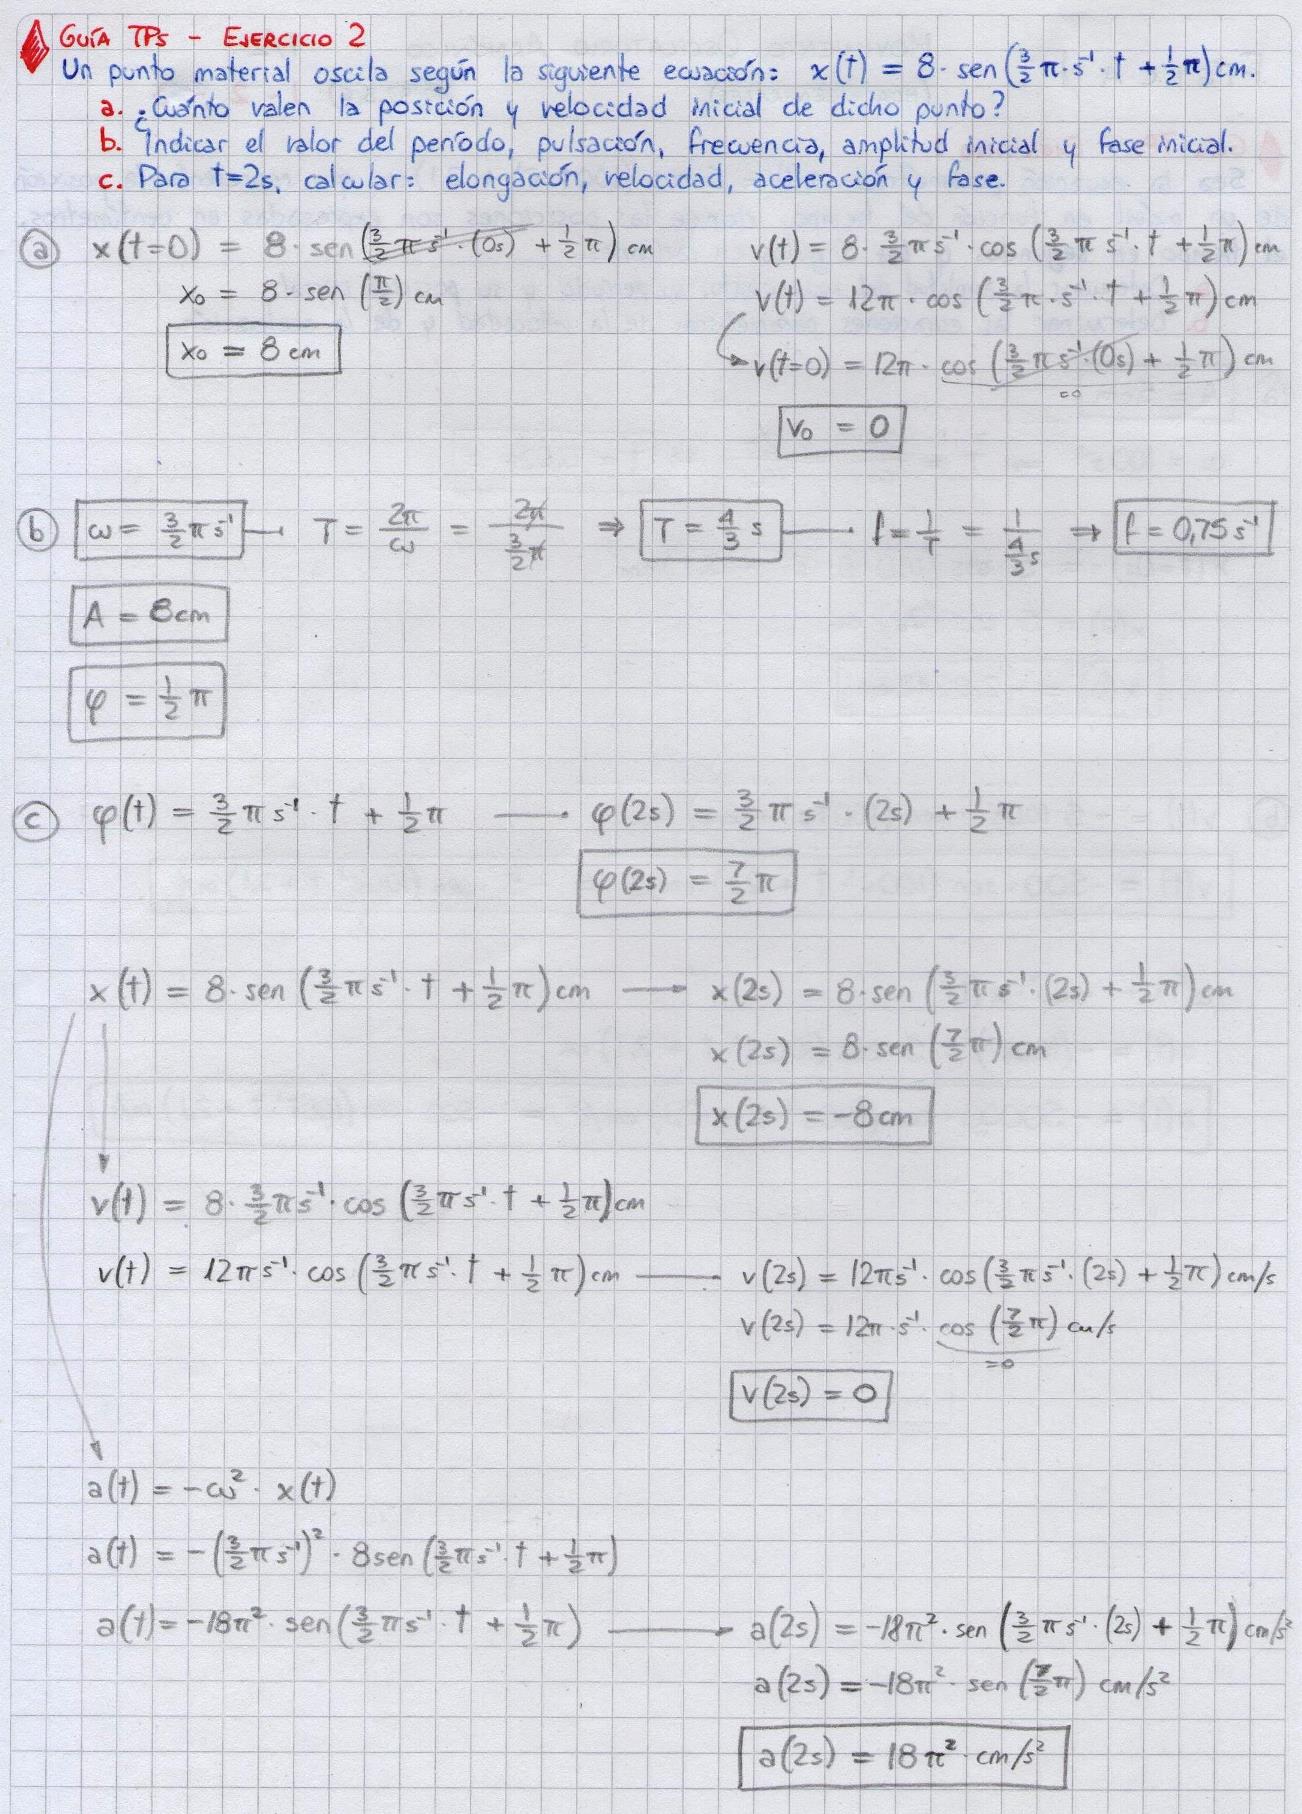 GUÍA TPs - EJERCICIO 2
Un punto material oscila según la siguiente ecuación: x(t) = 8· sen(3/2 π·s⁻¹·t + 1/2 π) cm.
a. ¿Cuánto valen la posición y velocidad inicial de dicho punto?
b. Indicar el valor del período, pulsación, frecuencia, amplitud inicial y fase inicial.
c. Para t=2s, calcular: elongación, velocidad, aceleración y fase.
a x(t=0) = 8·sen(3/2 π s⁻¹·(0s) + 1/2 π) cm
x₀ = 8·sen(π/2) cm
x₀ = 8 cm
v(t) = 8·3/2 π s⁻¹·cos(3/2 π s⁻¹·t + 1/2 π) cm
v(t) = 12π·cos(3/2 π·s⁻¹·t + 1/2 π) cm
v(t=0) = 12π·cos(3/2 π s⁻¹·(0s) + 1/2 π) cm
=0
v₀ = 0
b ω = 3/2 π s⁻¹ T = 2π/ω = 2π/(3/2 π) ⇒ T = 4/3 s f = 1/T = 1/(4/3 s) ⇒ f = 0,75 s⁻¹
A = 8cm
φ = 1/2 π
c φ(t) = 3/2 π s⁻¹·t + 1/2 π φ(2s) = 3/2 π s⁻¹·(2s) + 1/2 π
φ(2s) = 7/2 π
x(t) = 8·sen(3/2 π s⁻¹·t + 1/2 π) cm → x(2s) = 8·sen(3/2 π s⁻¹·(2s) + 1/2 π) cm
x(2s) = 8·sen(7/2 π) cm
x(2s) = -8cm
v(t) = 8·3/2 π s⁻¹·cos(3/2 π s⁻¹·t + 1/2 π) cm
v(t) = 12π s⁻¹·cos(3/2 π s⁻¹·t + 1/2 π) cm v(2s) = 12π s⁻¹·cos(3/2 π s⁻¹·(2s) + 1/2 π) cm/s
v(2s) = 12π·s⁻¹·cos(7/2 π) cm/s
=0
v(2s) = 0
a(t) = -ω²·x(t)
a(t) = -(3/2 π s⁻¹)²·8sen(3/2 π s⁻¹·t + 1/2 π)
a(t) = -18π²·sen(3/2 π s⁻¹·t + 1/2 π) → a(2s) = -18π²·sen(3/2 π s⁻¹·(2s) + 1/2 π) cm/s²
a(2s) = -18π²·sen(7/2 π) cm/s²
a(2s) = 18π²·cm/s²